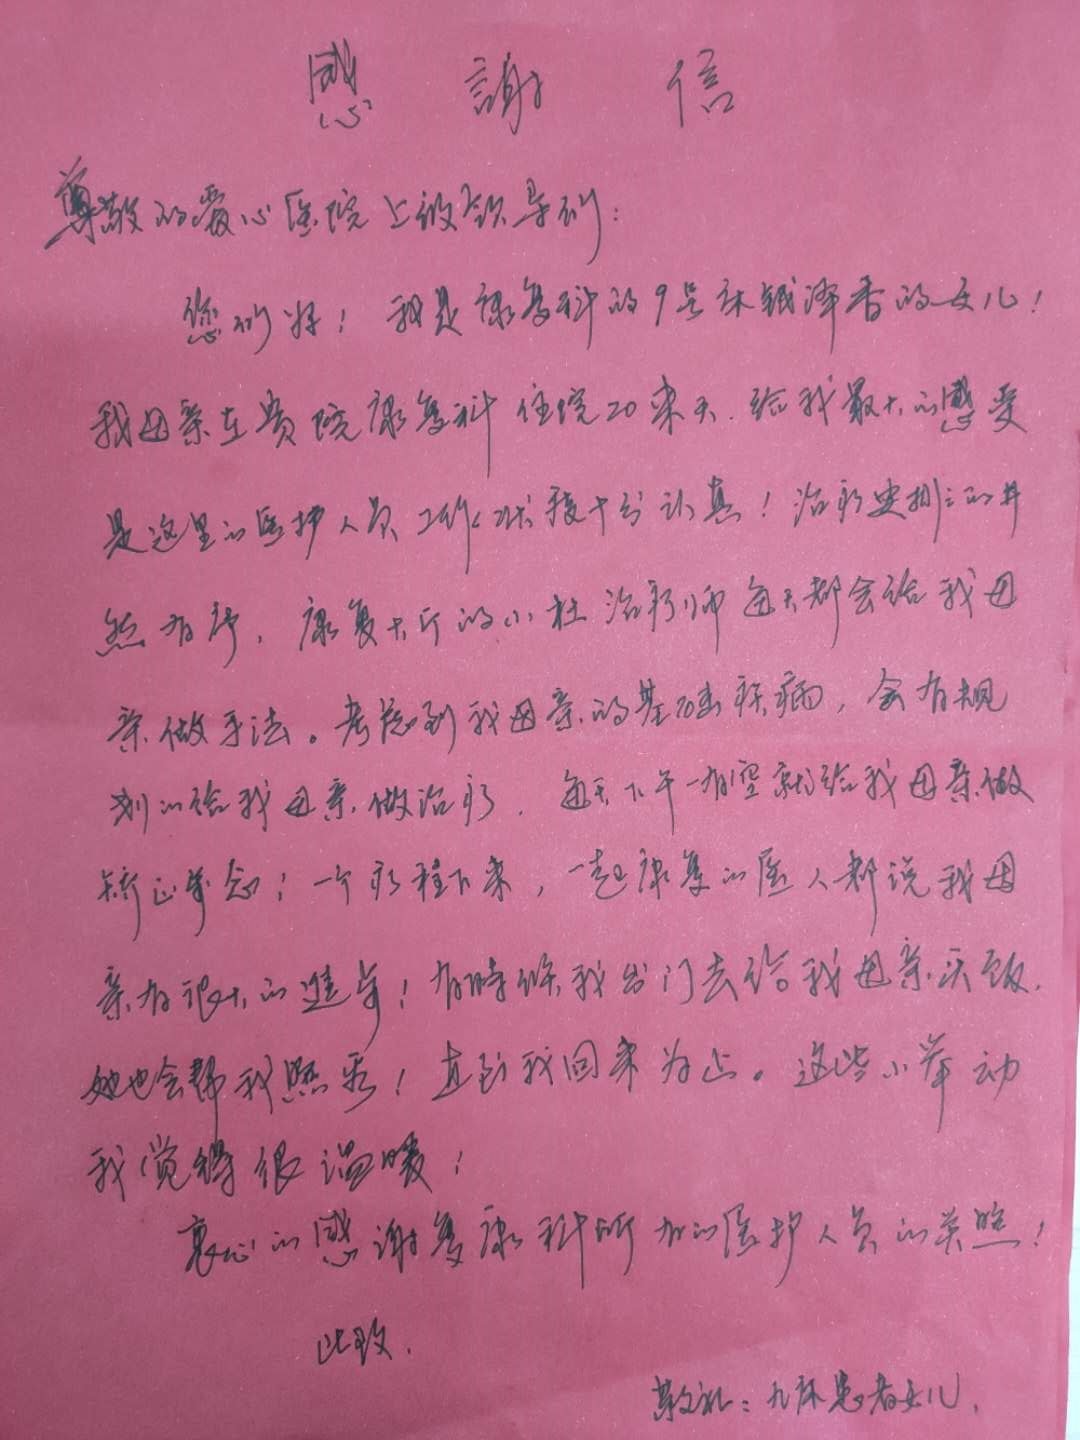 感謝信
尊敬的爱心医院上级领导们:
您们好!我是康复科的9号床钱泽香的女儿!
我母亲在贵院康复科住院20来天.给我最大的感受
是这里的医护人员工作状态十分认真!治疗安排的井
然有序,康复大厅的小杜治疗师每天都会给我母
亲做手法。考虑到我母亲的基础疾病,会有规
划的给我母亲做治疗.每天下午一有空就给我母亲做
矫正步态!一个疗程下来,一起康复的医人都说我母
亲有很大的进步!有時候我出门去给我母亲买饭.
她也会帮我照看!直到我回来为止。这些小举动
我觉得很温暖!
衷心的感谢复康科所有的医护人员的关照!
此致.
敬礼:九床患者女儿.